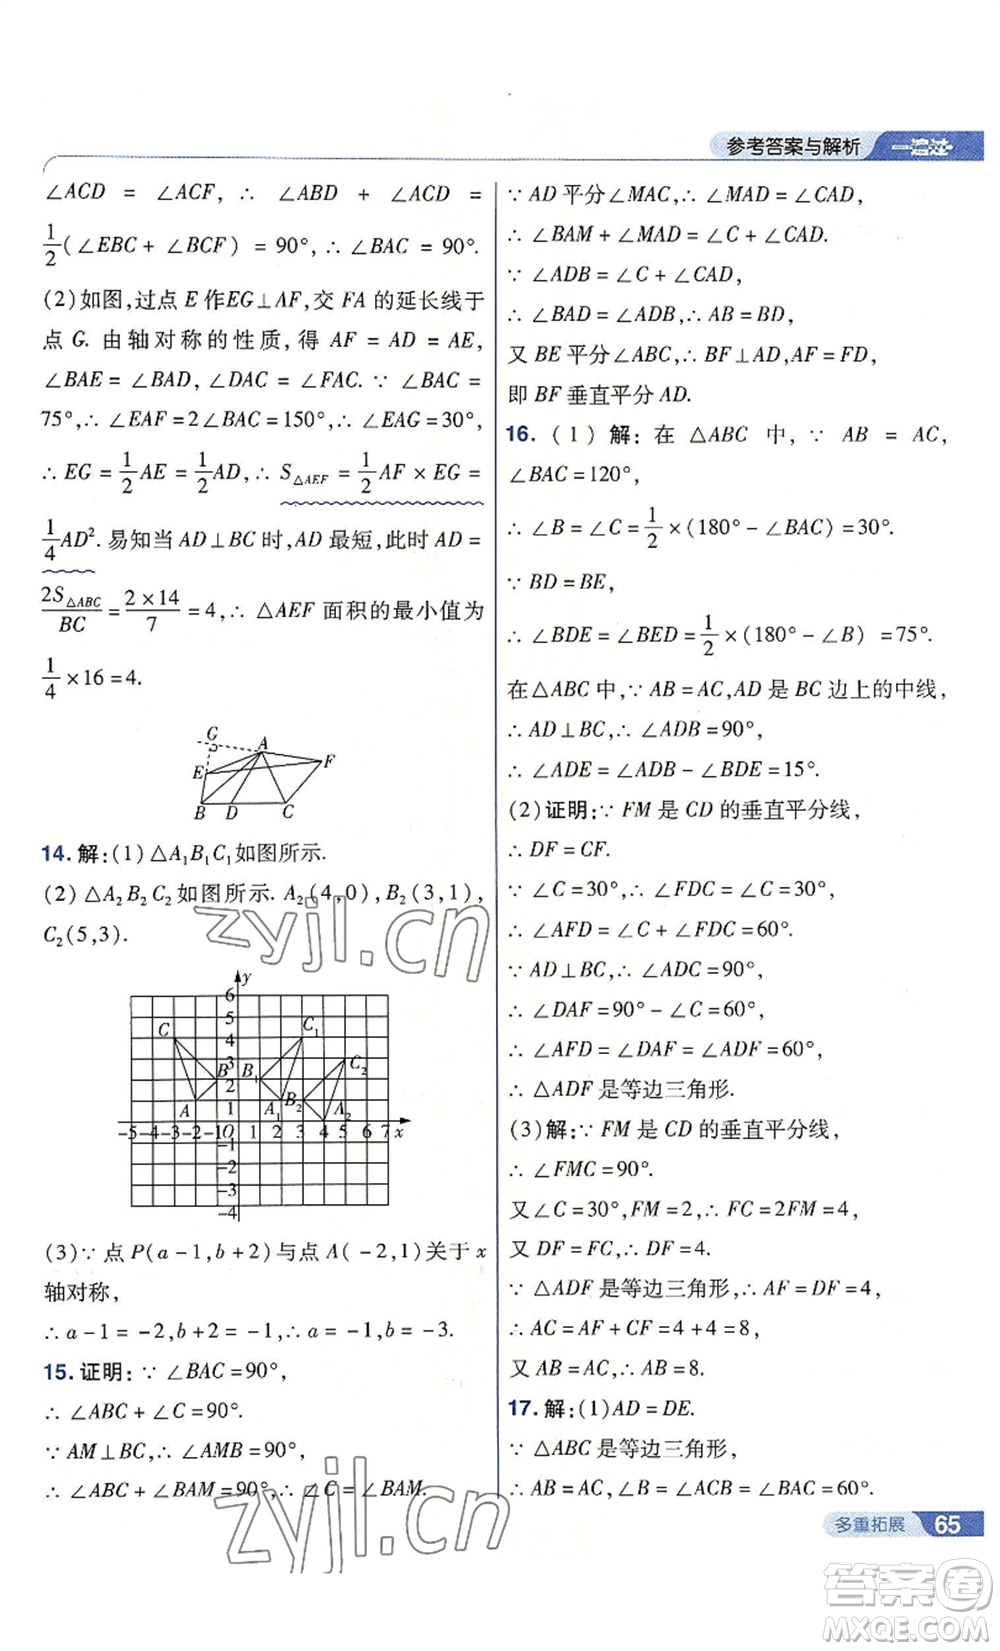 参考答案与解析 一遍过
∠ACD = ∠ACF, ∴ ∠ABD + ∠ACD =
1/2(∠EBC + ∠BCF) = 90°, ∴ ∠BAC = 90°.
(2)如图,过点 E 作EG⊥AF,交 FA 的延长线于
点 G. 由轴对称的性质,得 AF = AD = AE,
∠BAE = ∠BAD, ∠DAC = ∠FAC. ∵ ∠BAC =
75°, ∴ ∠EAF = 2∠BAC = 150°, ∴ ∠EAG = 30°,
∴ EG = 1/2AE = 1/2AD, ∴ S△AEF = 1/2AF × EG =
1/4AD². 易知当 AD⊥BC 时, AD 最短,此时 AD =
2S△ABC/BC = 2×14/7 = 4, ∴ △AEF 面积的最小值为
1/4 × 16 = 4.
G A F E B D C
14. 解:(1)△A₁B₁C₁如图所示.
(2)△A₂B₂C₂如图所示. A₂(4,0), B₂(3,1),
C₂(5,3).
y
6
5
C 4 C₁
3 C₂
B 2 B₁
A 1 A₁ B₂ A₂
-5 -4 -3 -2 -1 O 1 2 3 4 5 6 7 x
-1
-2
-3
-4
(3)∵ 点 P(a-1,b+2)与点 A(-2,1)关于 x
轴对称,
∴ a-1=-2,b+2=-1, ∴ a=-1,b=-3.
15. 证明:∵ ∠BAC = 90°,
∴ ∠ABC + ∠C = 90°.
∵ AM⊥BC, ∴ ∠AMB = 90°,
∴ ∠ABC + ∠BAM = 90°, ∴ ∠C = ∠BAM.
∵ AD 平分∠MAC, ∴ ∠MAD = ∠CAD,
∴ ∠BAM + ∠MAD = ∠C + ∠CAD.
∵ ∠ADB = ∠C + ∠CAD,
∴ ∠BAD = ∠ADB, ∴ AB = BD,
又 BE 平分∠ABC, ∴ BF⊥AD, AF = FD,
即 BF 垂直平分 AD.
16. (1)解:在 △ABC 中, ∵ AB = AC,
∠BAC = 120°,
∴ ∠B = ∠C = 1/2 × (180° - ∠BAC) = 30°.
∵ BD = BE,
∴ ∠BDE = ∠BED = 1/2 × (180° - ∠B) = 75°.
在△ABC 中, ∵ AB = AC, AD 是 BC 边上的中线,
∴ AD⊥BC, ∴ ∠ADB = 90°,
∴ ∠ADE = ∠ADB - ∠BDE = 15°.
(2)证明:∵ FM 是 CD 的垂直平分线,
∴ DF = CF.
∵ ∠C = 30°, ∴ ∠FDC = ∠C = 30°,
∴ ∠AFD = ∠C + ∠FDC = 60°.
∵ AD⊥BC, ∴ ∠ADC = 90°,
∴ ∠DAF = 90° - ∠C = 60°,
∴ ∠AFD = ∠DAF = 60°,
∴ △ADF 是等边三角形.
(3)解:∵ FM 是 CD 的垂直平分线,
∴ ∠FMC = 90°.
又∠C = 30°, FM = 2, ∴ FC = 2FM = 4,
又 DF = FC, ∴ DF = 4.
∵ △ADF 是等边三角形, ∴ AF = DF = 4,
∴ AC = AF + CF = 4 + 4 = 8,
又 AB = AC, ∴ AB = 8.
17. 解:(1)AD = DE.
∵ △ABC 是等边三角形,
∴ AB = AC, ∠ABC = ∠BAC = 60°.
多重拓展 65
zyjl.cn
zyjl.cn
答案圈
MXQE.COM